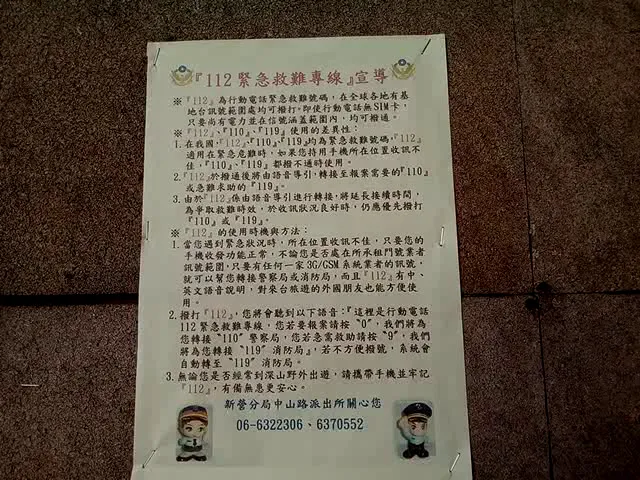 『112 緊急救難專線』宣導
※『112』為行動電話緊急救難號碼，在全球各地有基
地台訊號範圍處均可撥打。即使行動電話無SIM卡，
只要尚有電力並在信號涵蓋範圍內，均可撥通。
※『112』、『110』、『119』使用的差異性：
1.在我國，『112』、『110』、『119』均為緊急救難號碼，『112』
適用在緊急危難時，如果您持用手機所在位置收訊不
佳，『110』、『119』都撥不通時使用。
2.『112』於撥通後將由語音導引，轉接至報案需要的『110』
或急難求助的『119』。
3.由於『112』係由語音導引進行轉接，將延長接續時間，
為爭取救難時效，於收訊狀況良好時，仍應優先撥打
『110』或『119』。
※『112』的使用時機與方法：
1.當您遇到緊急狀況時，所在位置收訊不佳，只要您的
手機收發功能正常，不論您是否處在所承租門號業者
訊號範圍，只要有任何一家3G/GSM系統業者的訊號，
就可以幫您轉接警察局或消防局，而且『112』有中、
英文語音說明，對來台旅遊的外國朋友也能方便使
用。
2.撥打『112』，您將會聽到以下語音：『這裡是行動電話
112緊急救難專線，您若要報案請按〝0〞，我們將為
您轉接〝110〞警察局，您若急需救助請按〝9〞，我們
將為您轉接〝119〞消防局』，若不方便撥號，系統會
自動轉至〝119〞消防局。
3.無論您是否經常到深山野外出遊，請攜帶手機並牢記
『112』，有備無患更安心。
新營分局中山路派出所關心您
06-6322306、6370552